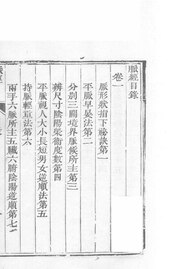 脈經目錄
卷一
脈形狀指下秘訣第一
平脈早晏法第二
分別三關境界脈候所主第三
辨尺寸陰陽榮衛度數第四
平脈視人大小長短男女逆順法第五
持脈輕重法第六
兩手六脈所主五臟六腑陰陽逆順第七